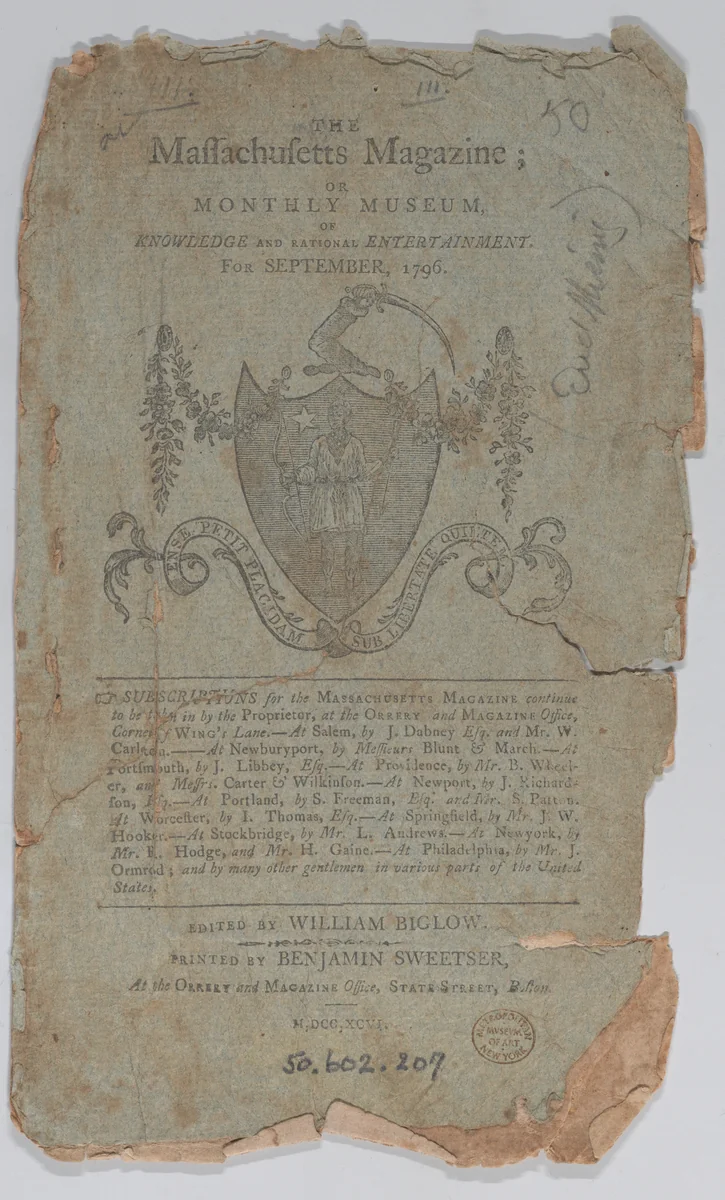 III.
50
THE
Maſſachuſetts Magazine;
OR
MONTHLY MUSEUM,
OF
KNOWLEDGE AND RATIONAL ENTERTAINMENT.
FOR SEPTEMBER, 1796.
ENSE PETIT PLACIDAM
SUB LIBERTATE QUIETEM
☞ SUBSCRIPTIONS for the MASSACHUSETTS MAGAZINE continue
to be taken in by the Proprietor, at the ORRERY and MAGAZINE Office,
Corner of WING's Lane.—At Salem, by J. Dabney Eſq. and Mr. W.
Carlton.——At Newburyport, by Meſſieurs Blunt & March.—At
Portſmouth, by J. Libbey, Eſq.—At Providence, by Mr. B. Wheel-
er, and Meſſrs. Carter & Wilkinſon.—At Newport, by J. Richard-
ſon, Eſq.—At Portland, by S. Freeman, Eſq. and Mr. S. Patton.
At Worceſter, by I. Thomas, Eſq.—At Springfield, by Mr. J. W.
Hooker.—At Stockbridge, by Mr. L. Andrews.—At Newyork, by
Mr. R. Hodge, and Mr. H. Gaine.—At Philadelphia, by Mr. J.
Ormrod; and by many other gentlemen in various parts of the United
States.
EDITED BY WILLIAM BIGLOW.
PRINTED BY BENJAMIN SWEETSER,
At the ORRERY and MAGAZINE Office, STATE STREET, Boſton.
M,DCC,XCVI.
METROPOLITAN
MUSEUM
OF ART
NEW YORK
50.602.207